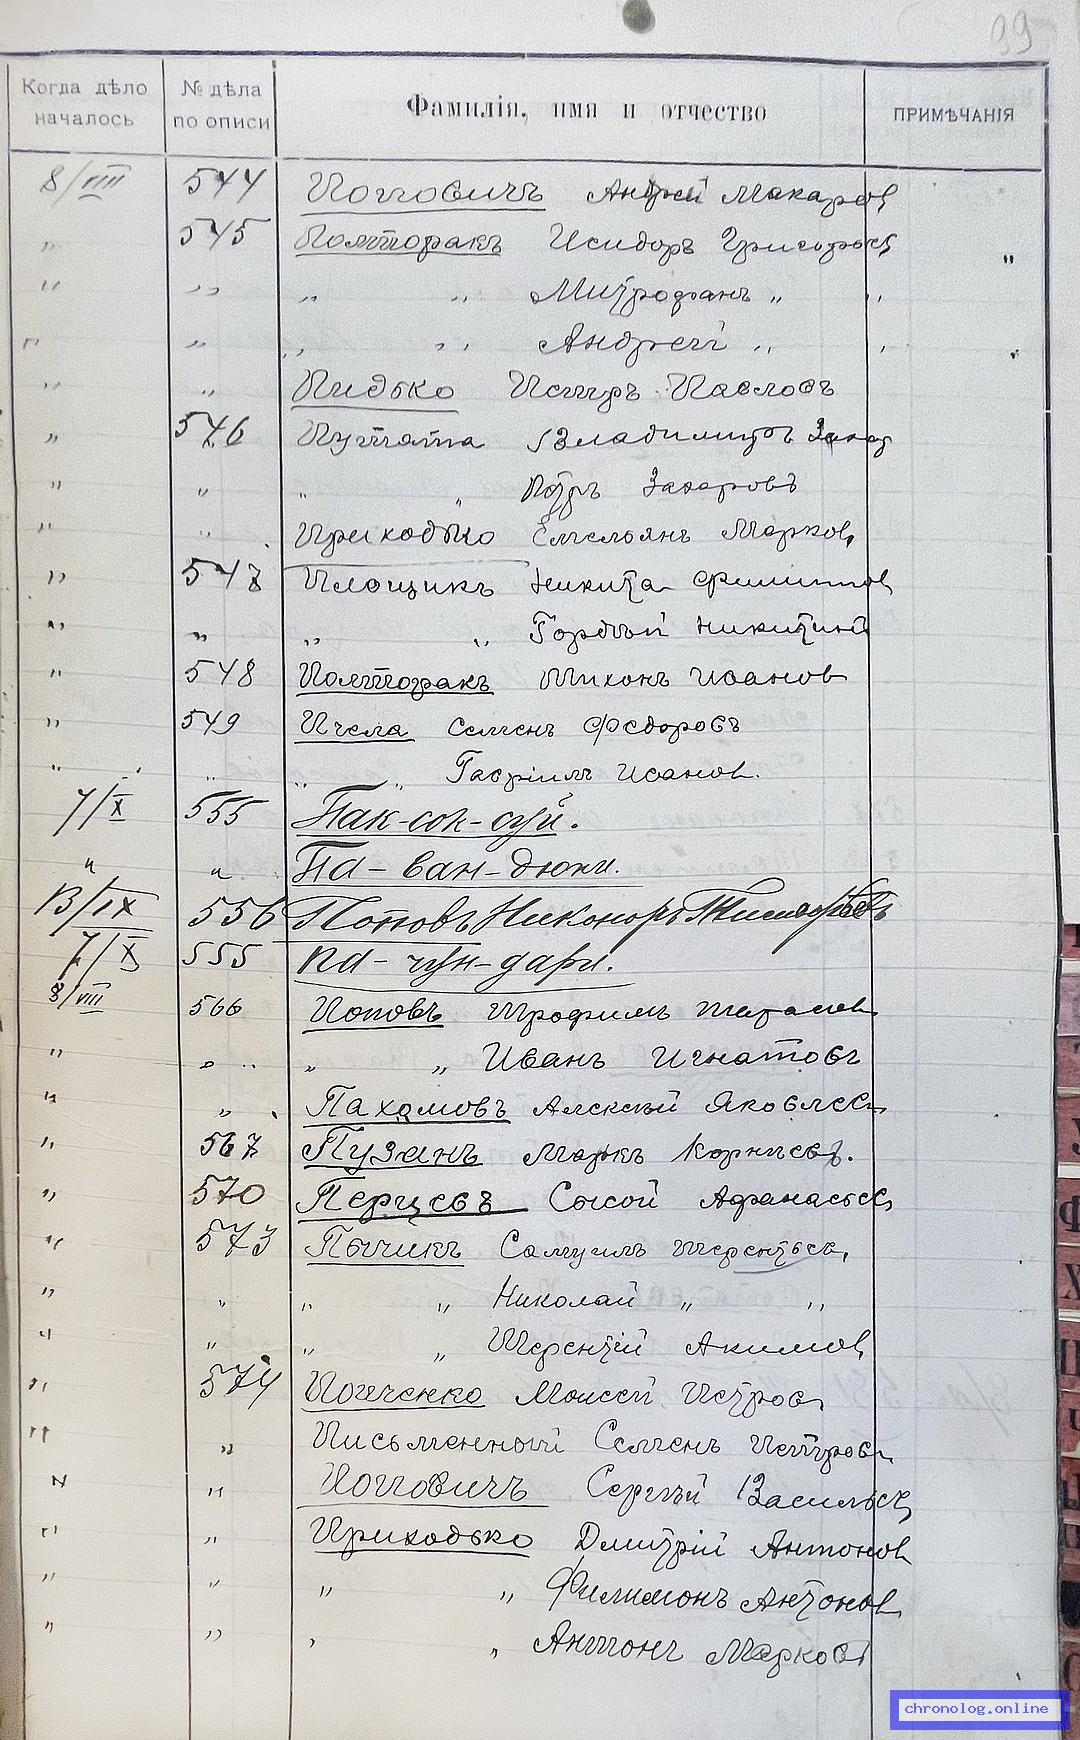 99
Когда дѣло началось № дѣла по описи Фамилія, имя и отчество ПРИМѢЧАНІЯ
8/VIII 544 Поповичъ Андрей Макаров
„ 545 Полторакъ Исидоръ Григорьев „
„ „ „ „ Митрофанъ „ „
„ „ „ „ Андрей „ „
„ „ Пидько Петръ Павловъ
„ 546 Путята Владимиръ Захар
„ „ „ „ Петръ Захаровъ
„ „ Приходько Емельянъ Марков
„ 547 Площикъ Никита Филиппов
„ „ „ „ Гордѣй Никитинъ
„ 548 Полторакъ Тихонъ Иванов
„ 549 Пчела Семенъ Федоровъ
„ „ „ „ Гавріилъ Иванов.
7/X 555 Пак-сок-суй.
„ „ Па-ван-дюки.
13/IX 556 Поповъ Никоноръ
7/X 555 Па-чун-дари.
8/VIII 566 Поповъ Трофимъ Тарасов
„ „ „ „ Иванъ Игнатовъ
„ „ Пахомовъ Алексѣй Яковлев
„ 567 Пузанъ Маркъ Корнѣев.
„ 570 Перцевъ Сысой Афанасьев
„ 573 Пычикъ Самуилъ Терентьев
„ „ „ „ Николай „ „
„ „ „ „ Терентій Акимов
„ 574 Моисей Петров
„ „ Письменный Семенъ Петров
„ „ Поповичъ Сергѣй Васильев
„ „ Приходько Дмитрій Антонов
„ „ „ „ Филимонъ Антонов
„ „ „ „ Антонъ Марков
chronolog.online